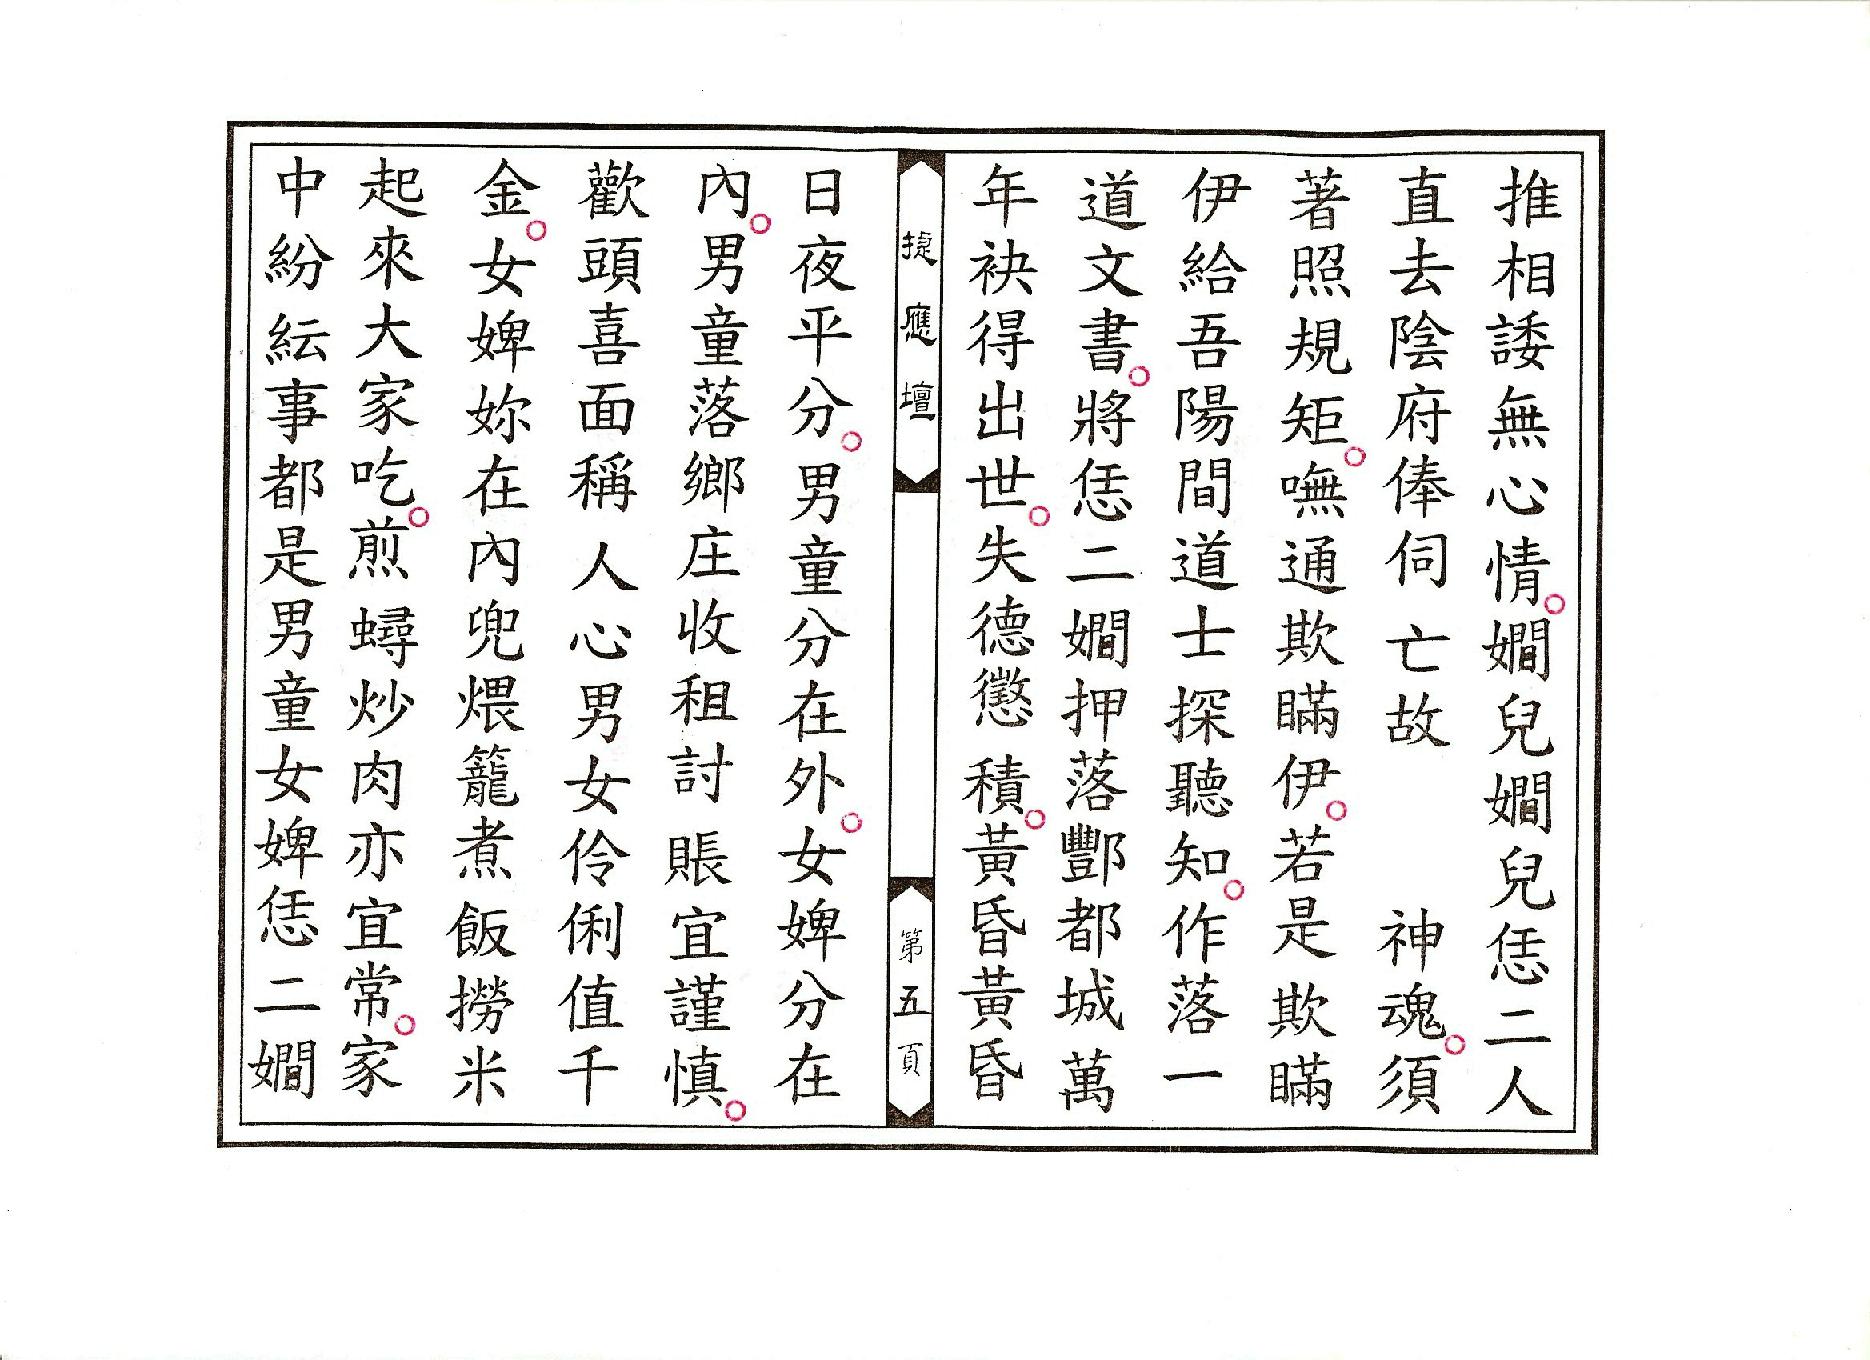 推相諉無心情。嫺兒嫺兒恁二人
直去陰府俸伺亡故　　神魂。須
著照規矩。嘸通欺瞞伊。若是欺瞞
伊給吾陽間道士探聽知。作落一
道文書。將恁二嫺押落酆都城萬
年袂得出世。失德懲積。黃昏黃昏
捷應壇
第五頁
日夜平分。男童分在外。女婢分在
內。男童落鄉庄收租討賬宜謹慎。
歡頭喜面稱人心男女伶俐值千
金。女婢妳在內兜煨籠煮飯撈米
起來大家吃。煎蟳炒肉亦宜常。家
中紛紜事都是男童女婢恁二嫺